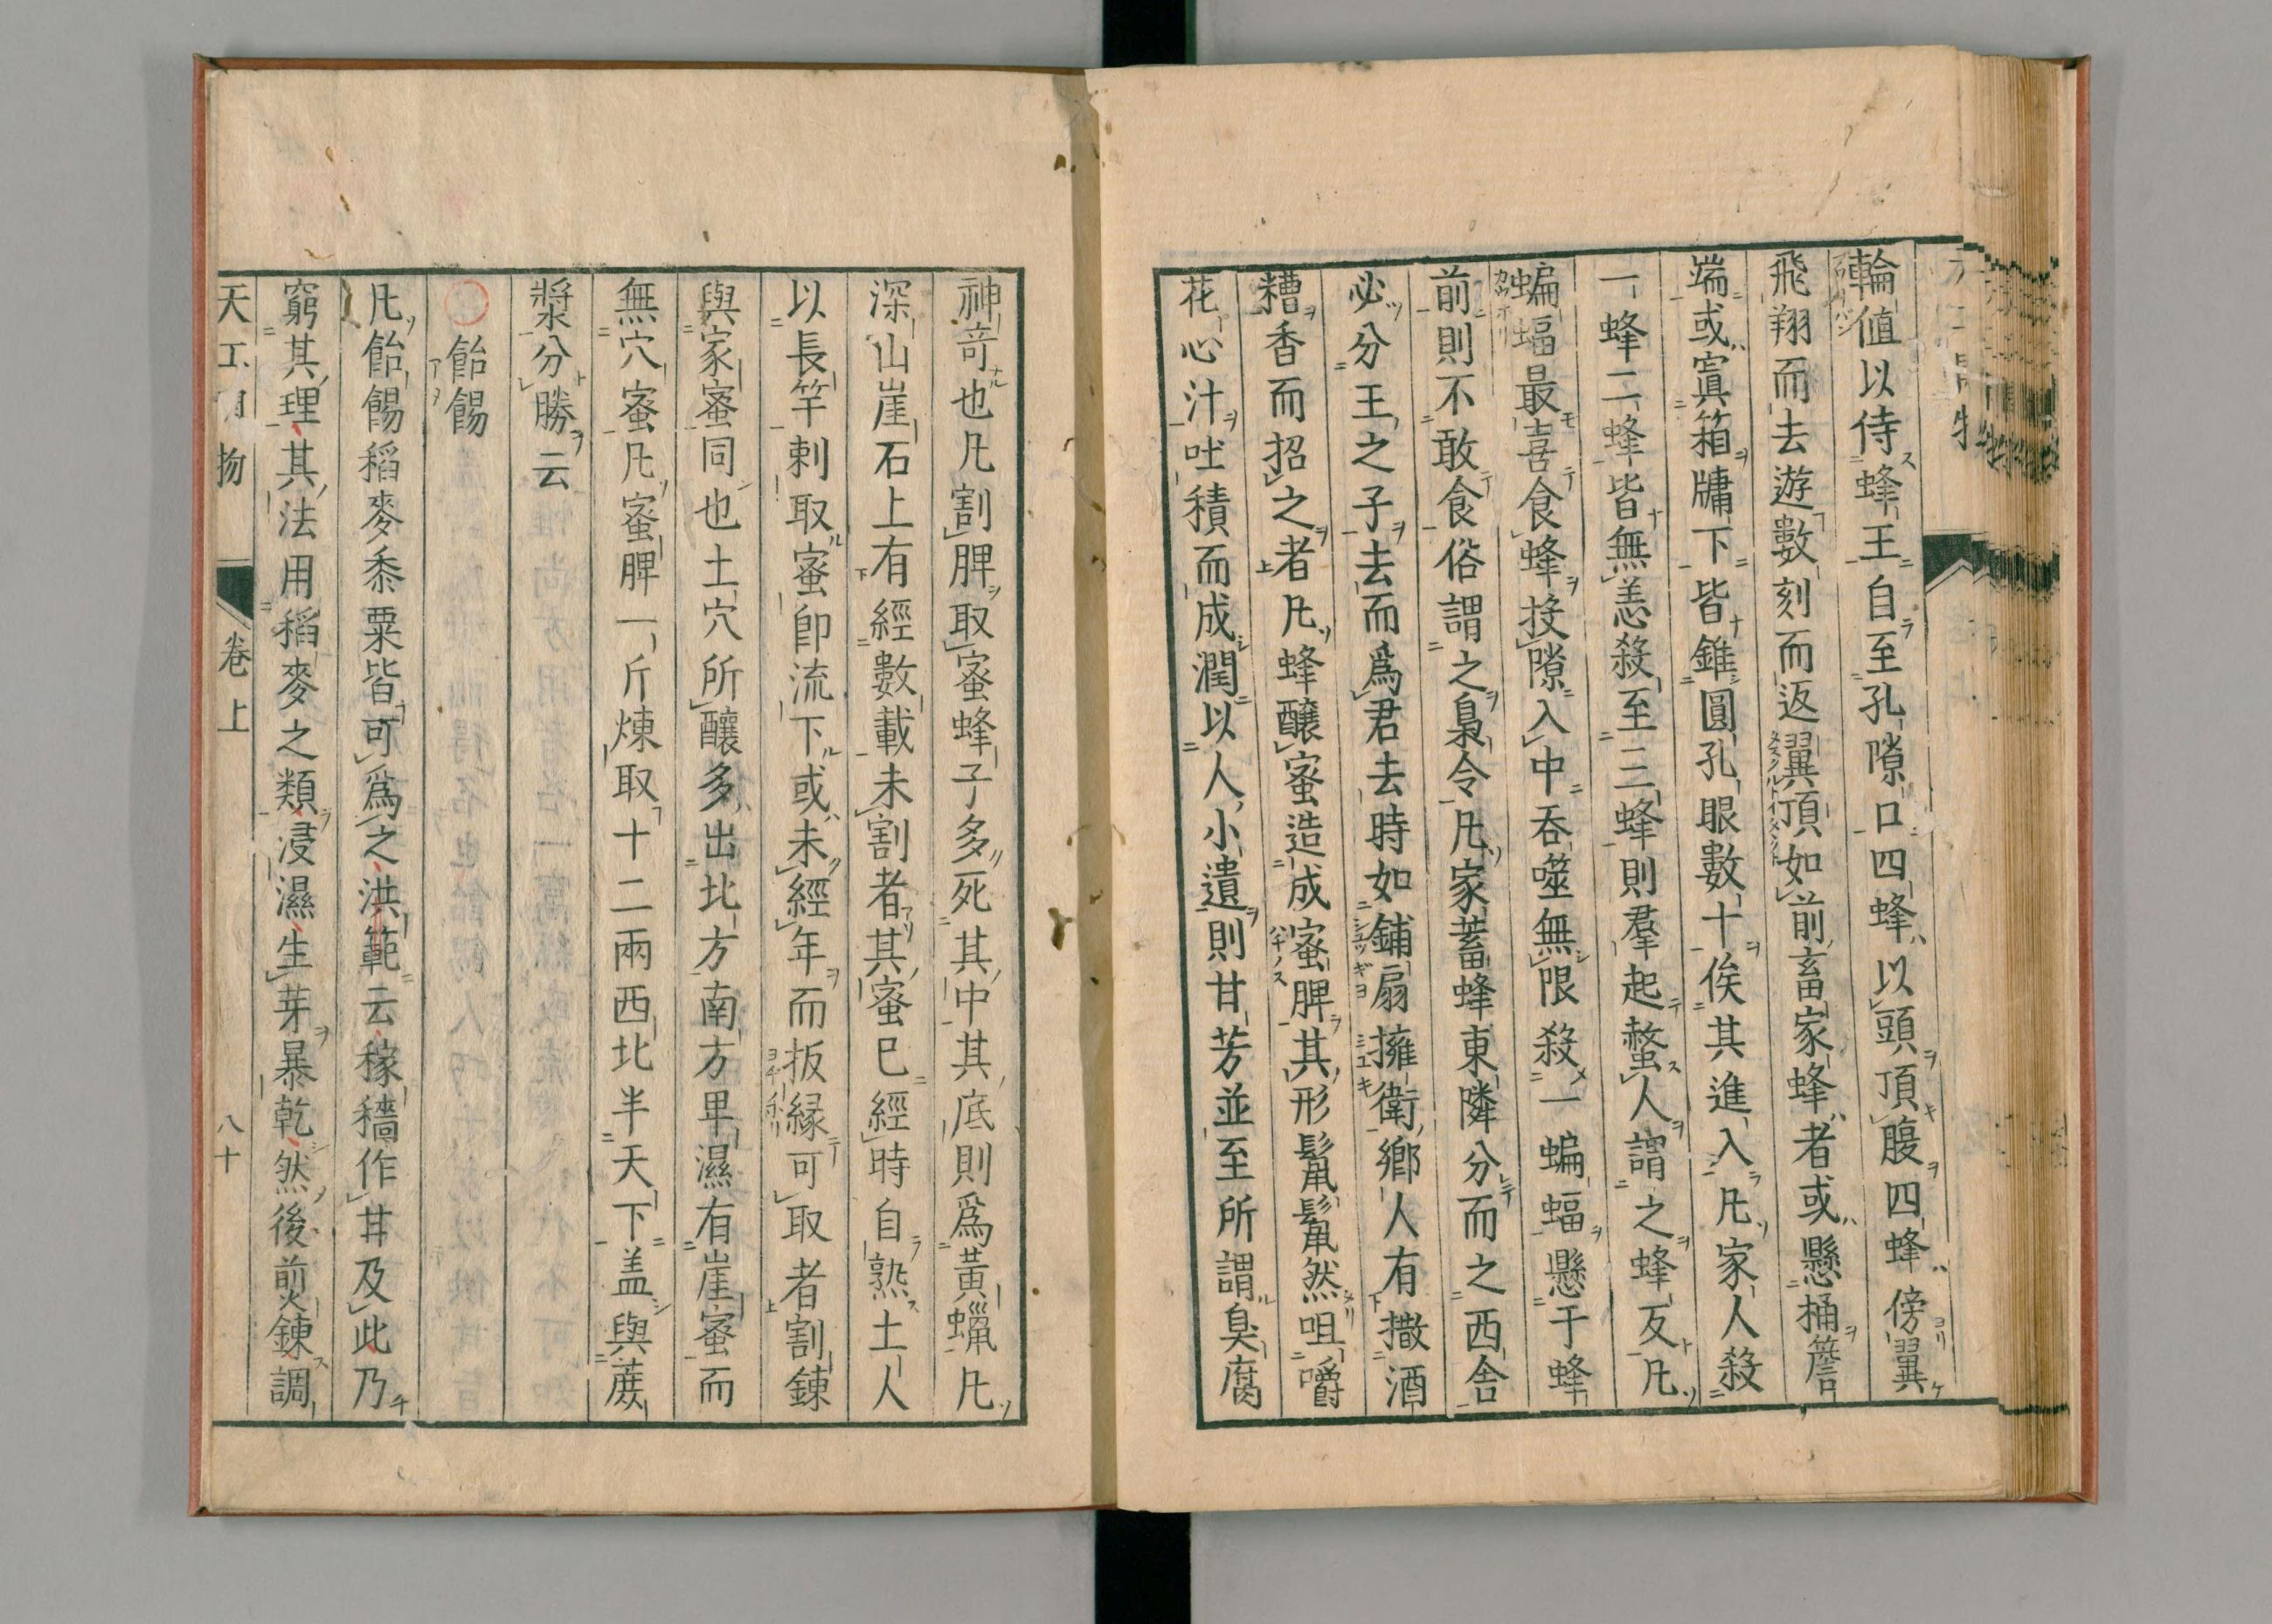 輪値以侍蜂王自至孔隙口四蜂以頭頂腹四蜂傍翼
飛翔而去遊數刻而返翼頂如前畜家蜂者或懸桶簷
端或寘箱牖下皆錐圓孔眼數十俟其進入凡家人殺
一蜂二蜂皆無恙殺至三蜂則羣起螫人謂之蜂反凡
蝙蝠最喜食蜂投隙入中吞噬無限殺一蝙蝠懸于蜂
前則不敢食俗謂之梟令凡家蓄蜂東隣分而之西舍
必分王之子去而爲君去時如鋪扇擁衛鄉人有撒酒
糟香而招之者凡蜂釀蜜造成蜜脾其形鬣鬣然咀嚼
花心汁吐積而成潤以人小遺則甘芳並至所謂臭腐
神竒也凡割脾取蜜蜂子多死其中其底則爲黃蠟凡
深山崖石上有經數載未割者其蜜已經時自熟土人
以長竿刺取蜜卽流下或未經年而扳緣可取者割鍊
與家蜜同也土穴所釀多出北方南方卑濕有崖蜜而
無穴蜜凡蜜脾一斤煉取十二兩西北半天下盖與蔗
漿分勝云
飴餳
凡飴餳稻麥黍粟皆可爲之洪範云稼穡作甘及此乃
窮其理其法用稻麥之類浸濕生芽暴乾然後煎鍊調
天工開物 卷上 八十